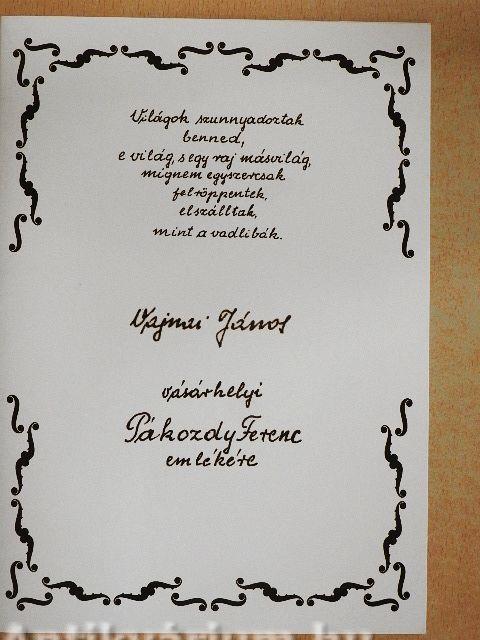 Világok szunnyadoztak
benned,
e világ, s egy raj másvilág,
mígnem egyszercsak
felröppentek,
elszálltak,
mint a vadlibák.
Vajnai János
vásárhelyi
Pákozdy Ferenc
emlékére
Antikvárium.hu